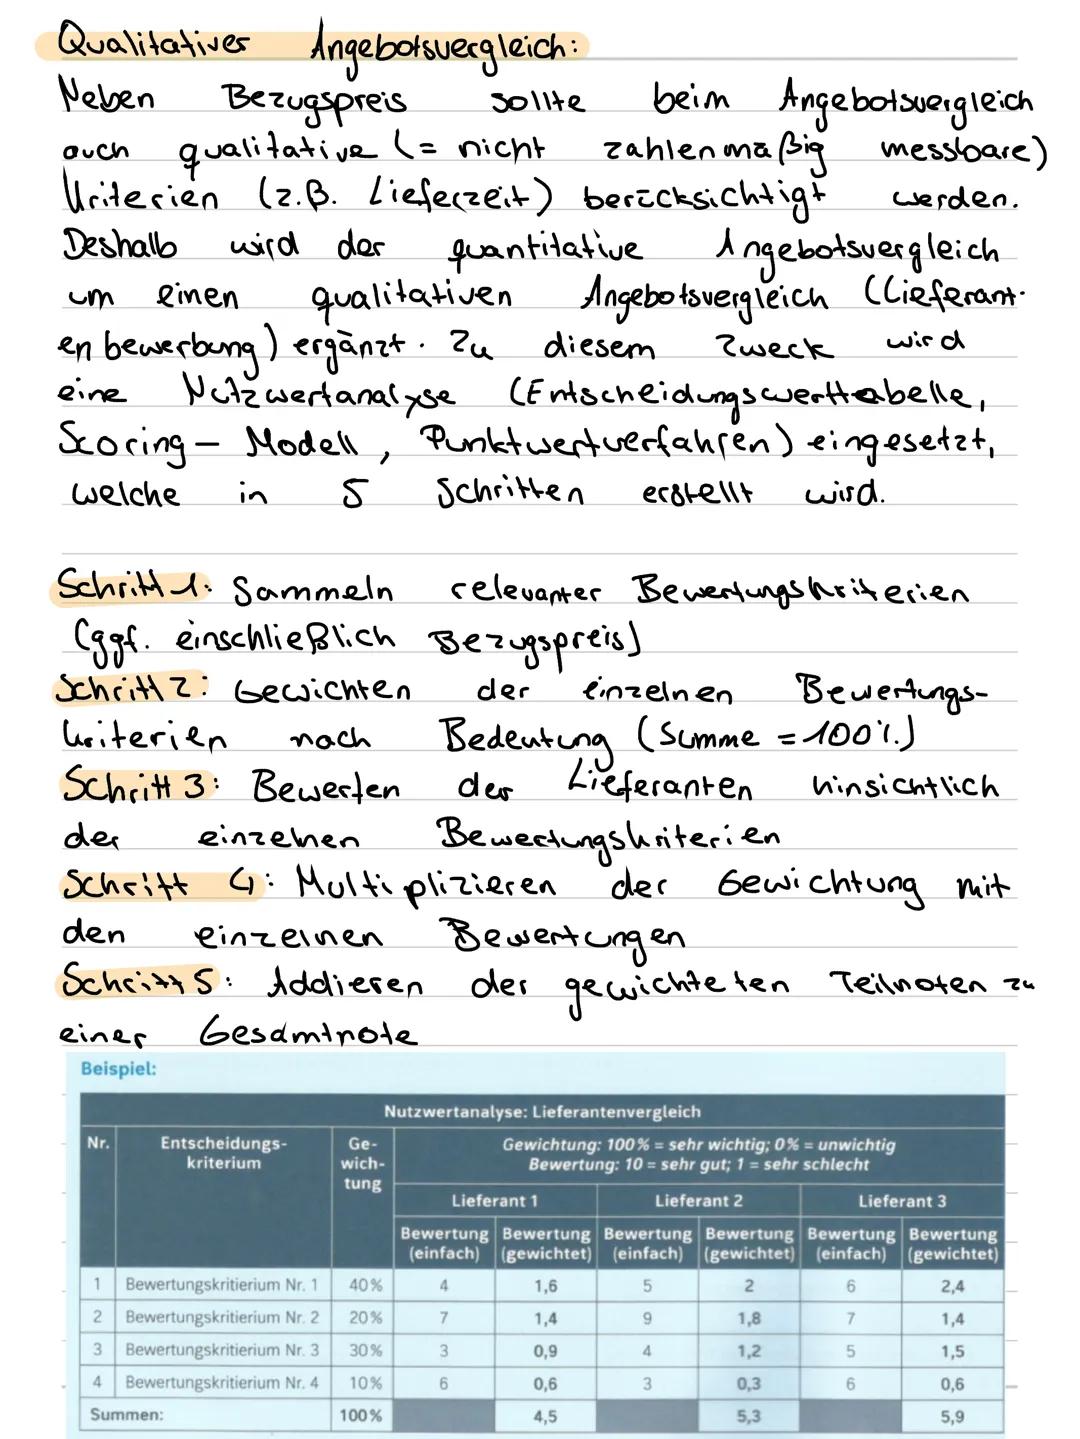 Qualitativer Angebotsvergleich:
Neben Bezugspreis sollte beim Angebotsvergleich
auch qualitative (= nicht zahlenmäßig messbare)
Kriterien (z.B. Lieferzeit) berücksichtigt werden.
Deshalb wird der quantitative Angebotsvergleich
um einen qualitativen Angebotsvergleich (Lieferant-
enbewerbung) ergänzt. Zu diesem Zweck wird
eine Nutzwertanalyse (Entscheidungswerttabelle,
Scoring-Modell, Punktwertverfahren) eingesetzt,
welche in 5 Schritten erstellt wird.
Schritt 1: Sammeln relevanter Bewertungskriterien
(ggf. einschließlich Bezugspreis)
Schritt 2: Gewichten der einzelnen Bewertungs-
kriterien nach Bedeutung (Summe = 100%)
Schritt 3: Bewerten der Lieferanten hinsichtlich
der einzelnen Bewertungskriterien
Schritt 4: Multiplizieren der Gewichtung mit
den einzelnen Bewertungen
Schritt 5: Addieren der gewichteten Teilnoten zu
einer Gesamtnote
Beispiel:
Nutzwertanalyse: Lieferantenvergleich
Nr. Entscheidungs- Ge- Gewichtung: 100% = sehr wichtig; 0% = unwichtig
kriterium wich- Bewertung: 10 = sehr gut; 1 = sehr schlecht
tung
Lieferant 1 Lieferant 2 Lieferant 3
Bewertung Bewertung Bewertung Bewertung Bewertung Bewertung
(einfach) (gewichtet) (einfach) (gewichtet) (einfach) (gewichtet)
1 Bewertungskritierium Nr. 1 40% 4 1,6 5 2 6 2,4
2 Bewertungskritierium Nr. 2 20% 7 1,4 9 1,8 7 1,4
3 Bewertungskritierium Nr. 3 30% 3 0,9 4 1,2 5 1,5
4 Bewertungskritierium Nr. 4 10% 6 0,6 3 0,3 6 0,6
Summen: 100% 4,5 5,3 5,9